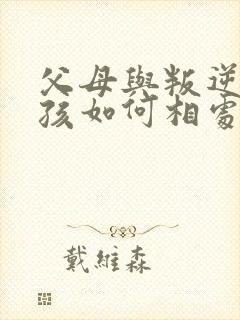 父母與叛逆
孩如何相處
戴維森